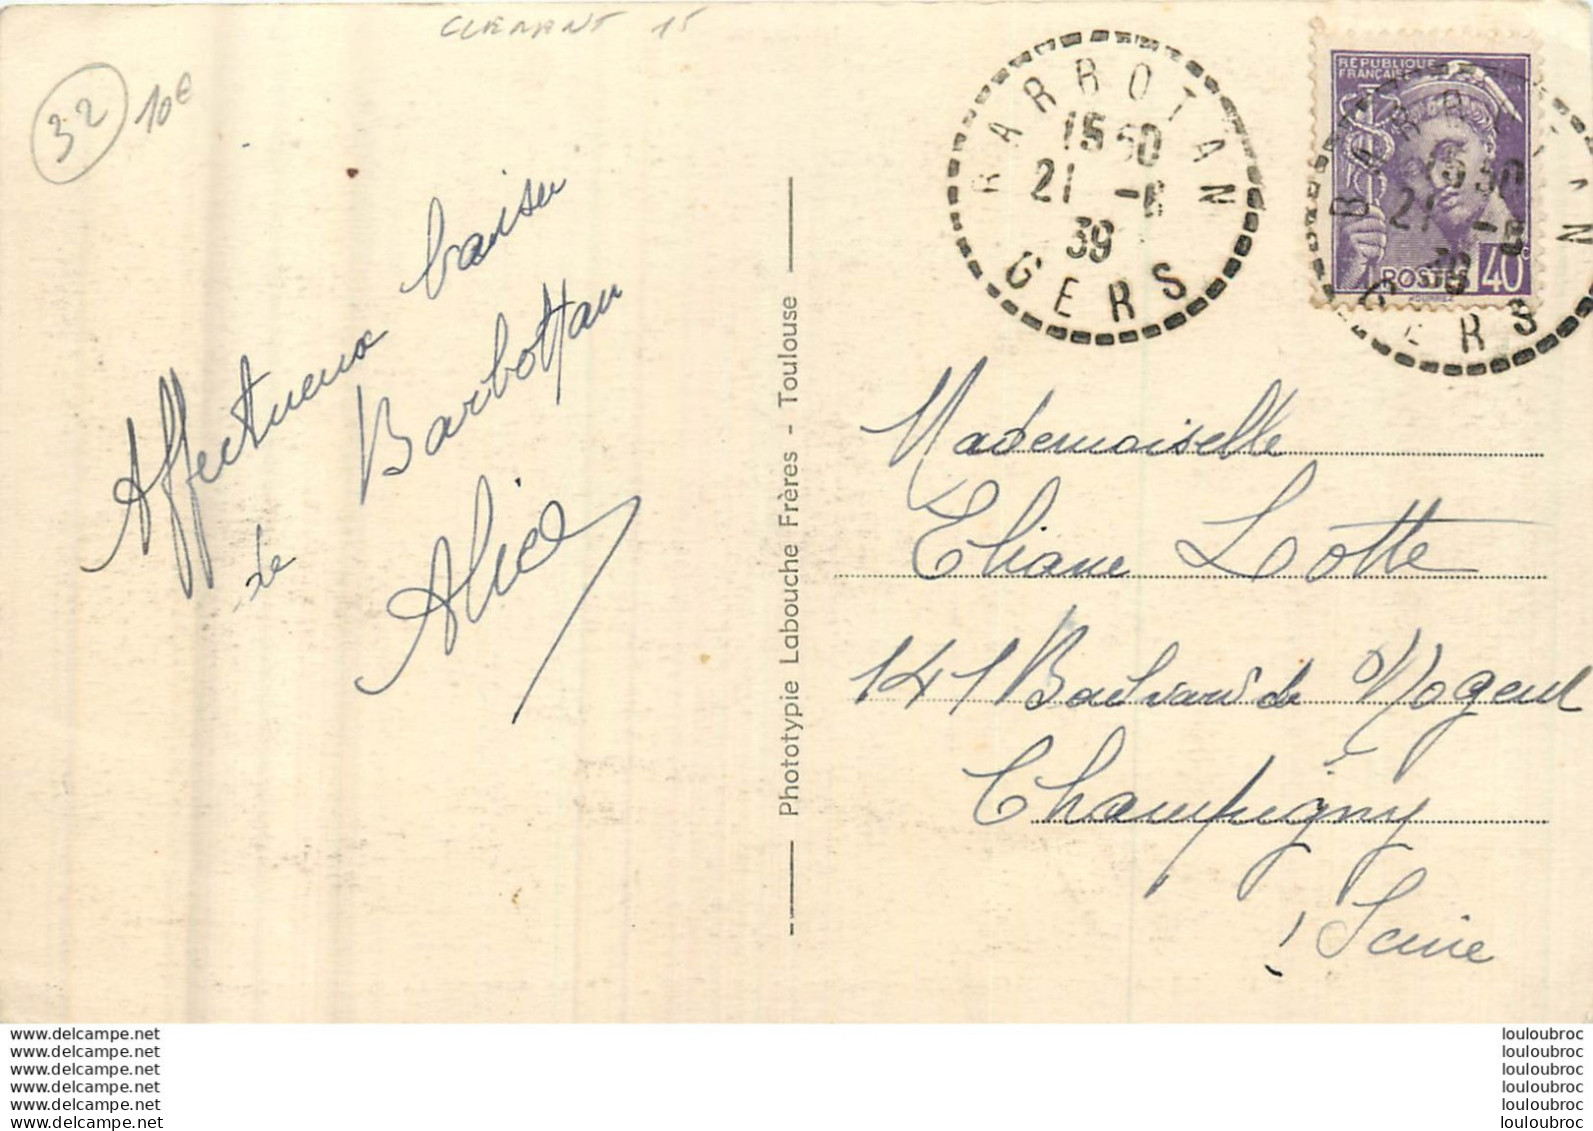 CLERMONT 15
32
10€
Affectueux baiser
de Barbottan
Alice
Phototypie Labouche Frères - Toulouse
BARBOTAN
15 50
21 -6
39
GERS
RÉPUBLIQUE
FRANÇAISE
POSTES 40c
BARBOTAN
15 50
21 -6
39
GERS
Mademoiselle
Eliane Lotte
141 Boulvard de Nogent
Champigny
Seine
www.delcampe.net
www.delcampe.net
www.delcampe.net
www.delcampe.net
www.delcampe.net
www.delcampe.net
louloubroc
louloubroc
louloubroc
louloubroc
louloubroc
louloubroc